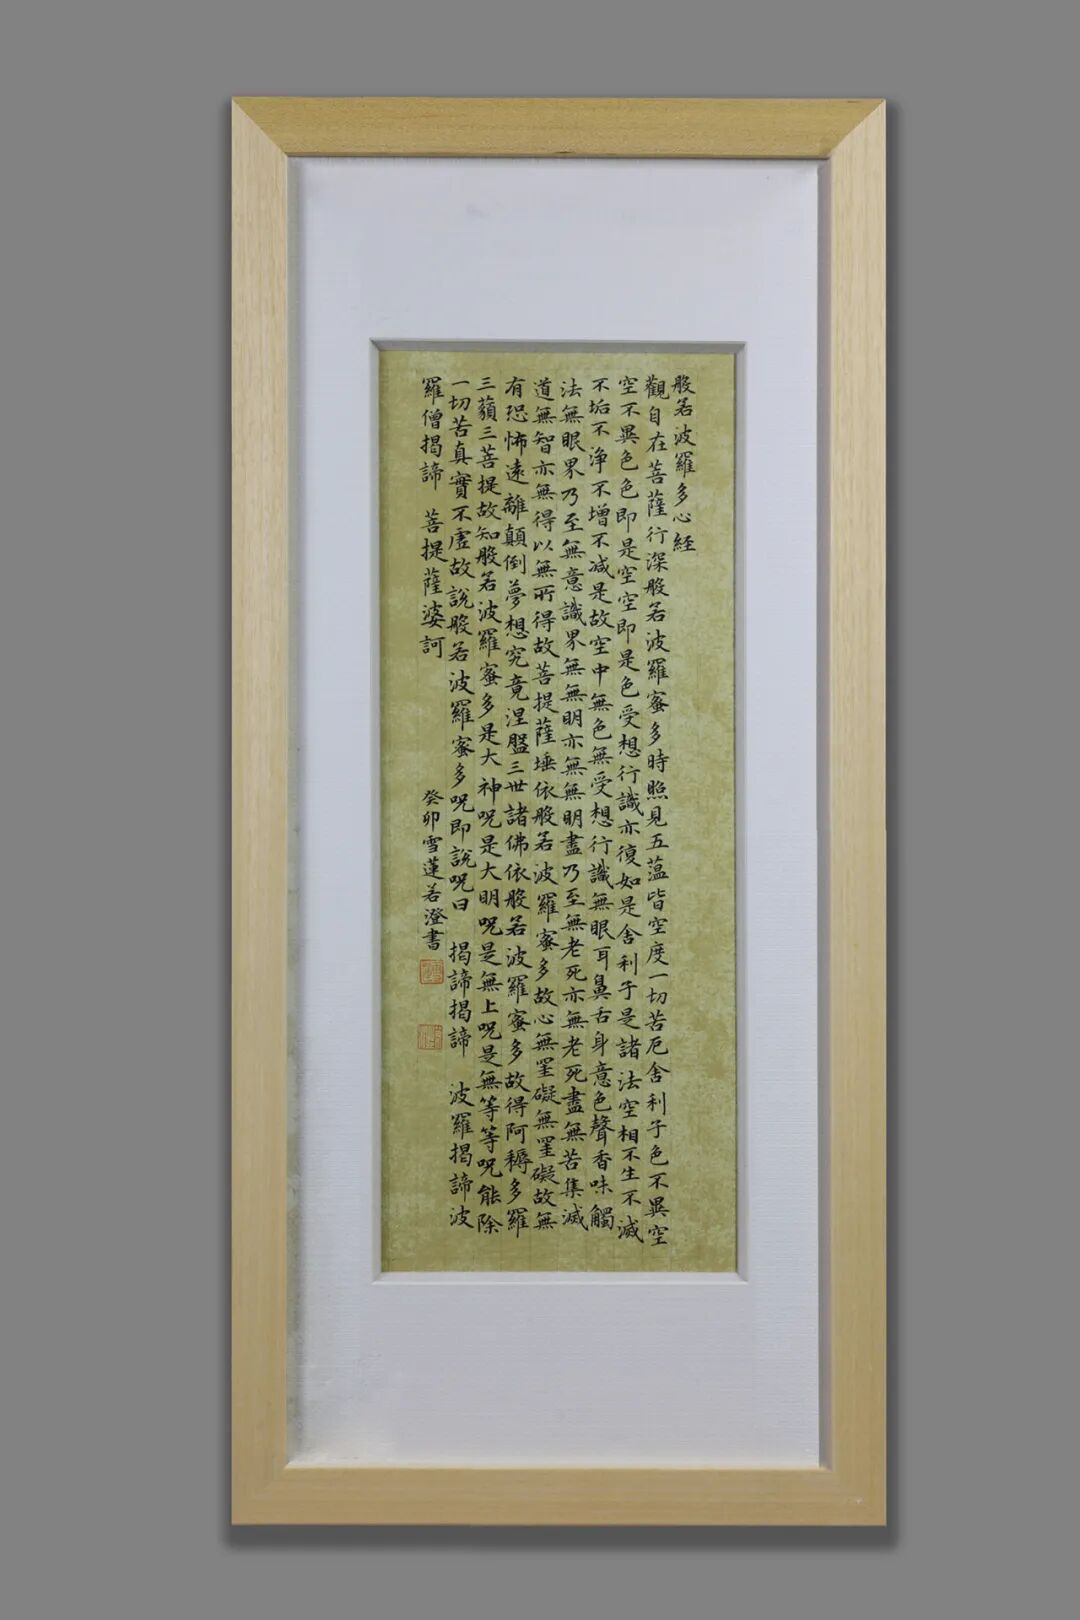 般若波羅多心経
觀自在菩薩行深般若波羅蜜多時照見五蕰皆空度一切苦厄舍利子色不異空
空不異色色即是空空即是色受想行識亦復如是舍利子是諸法空相不生不滅
不垢不淨不增不減是故空中無色無受想行識無眼耳鼻舌身意色聲香味觸
法無眼界乃至無意識界無無明亦無無明盡乃至無老死亦無老死盡無苦集滅
道無智亦無得以無所得故菩提薩埵依般若波羅蜜多故心無罣礙無罣礙故無
有恐怖遠離顛倒夢想究竟涅盤三世諸佛依般若波羅蜜多故得阿耨多羅
三藐三菩提故知般若波羅蜜多是大神咒是大明咒是無上咒是無等等咒能除
一切苦真實不虛故說般若波羅蜜多咒即說咒曰 揭諦揭諦 波羅揭諦波
羅僧揭諦 菩提薩婆訶
癸卯雪蓮若澄書